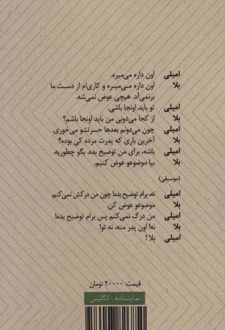 امیلی اون داره می‌میره.
بلا اون داره می‌میره و کاری‌ام از دست ما
برنمی‌آد. هیچی عوض نمی‌شه.
امیلی تو باید اونجا باشی.
بلا از کجا می‌دونی من باید اونجا باشم؟
امیلی چون می‌دونم بعدها حسرتشو می‌خوری.
بلا آخرین باری که پدرت مرده کی بوده؟
امیلی باشه، برای من توضیح بده. بگو چطوریه.
بلا بیا موضوعو عوض کنیم.
(موسیقی)
امیلی نه، برام توضیح بده! چون من درکش نمی‌کنم.
بلا موضوعو عوض کن.
امیلی من درک نمی‌کنم پس برام توضیح بده!
بلا نه! اون پدر منه، نه تو!
امیلی بلا!
قیمت: ۲۰۰۰۰ تومان
نمایشنامه: انگلیس